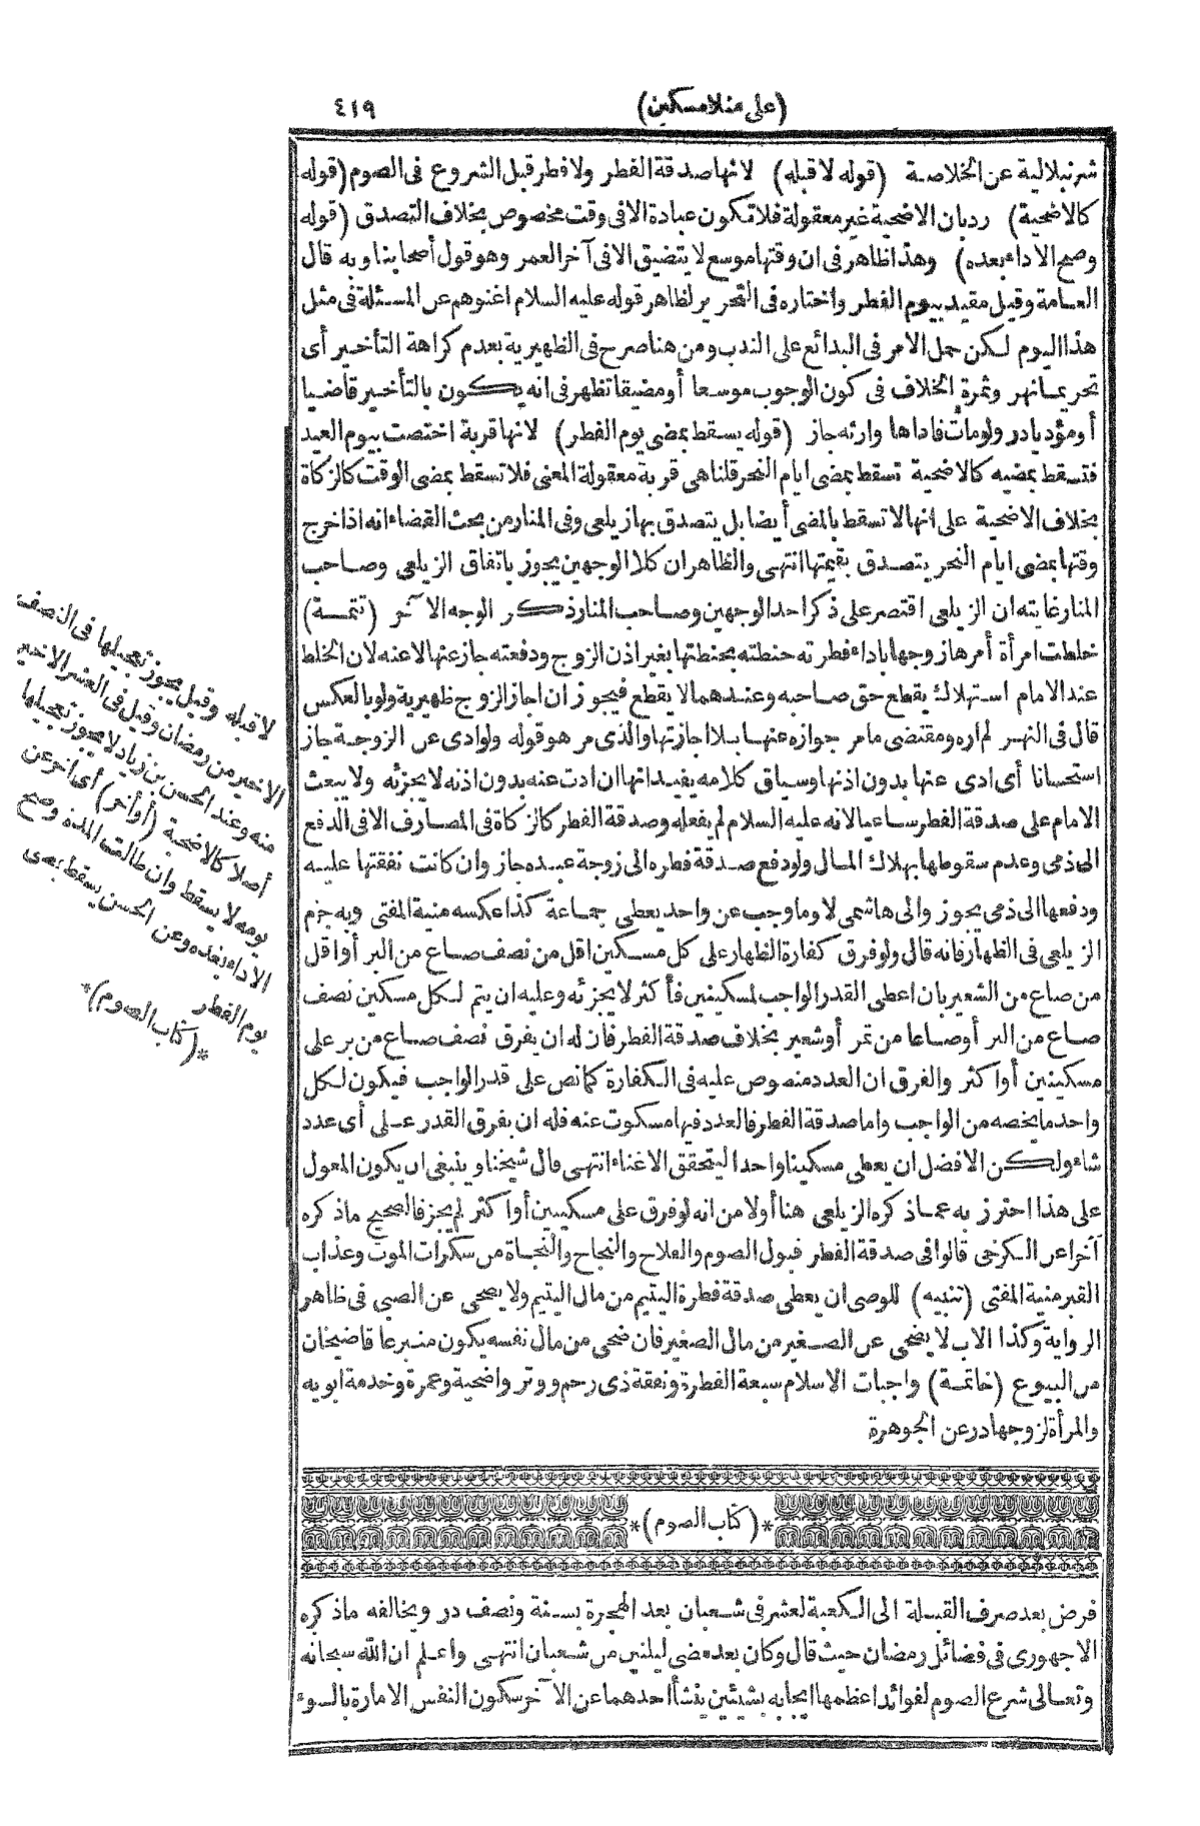 (على منلا مسكين) ٤١٩
شرنبلالية عن الخلاصة (قوله لا قبله) لانها صدقة الفطر ولا فطر قبل الشروع فى الصوم (قوله
كالاضحية) رد بان الاضحية غير معقولة فلا تكون عبادة الا فى وقت مخصوص بخلاف التصدق (قوله
وصح الاداء بعده) وهذا ظاهر فى ان وقتها موسع لا يتضيق الا فى آخر العمر وهو قول أصحابنا وبه قال
العامة وقيل مقيد بيوم الفطر واختاره فى التحرير لظاهر قوله عليه السلام اغنوهم عن المسئلة فى مثل
هذا اليوم لكن حمل الامر فى البدائع على الندب ومن هنا صرح فى الظهيرية بعدم كراهة التأخير أى
تحريما نهر وثمرة الخلاف فى كون الوجوب موسعا أو مضيقا تظهر فى انه يكون بالتأخير قاضيا
أو مؤديا در ولو مات فاداها وارثه جاز (قوله يسقط بمضى يوم الفطر) لانها قربة اختصت بيوم العيد
فتسقط بمضيه كالاضحية تسقط بمضى ايام النحر قلنا هى قربة معقولة المعنى فلا تسقط بمضى الوقت كالزكاة
بخلاف الاضحية على انها لا تسقط بالمضى أيضا بل يتصدق بها زيلعى وفى المنار من بحث القضاء انه اذا خرج
وقتها بمضى ايام النحر يتصدق بقيمتها انتهى والظاهر ان كلا الوجهين يجوز باتفاق الزيلعى وصاحب
المنار غايته ان الزيلعى اقتصر على ذكر احد الوجهين وصاحب المنار ذكر الوجه الآخر (تتمة)
خلطت امرأة أمرها زوجها باداء فطرته حنطته بحنطتها بغير اذن الزوج ودفعته جاز عنها لا عنه لان الخلط
عند الامام استهلاك يقطع حق صاحبه وعندهما لا يقطع فيجوز ان اجاز الزوج ظهيرية ولو بالعكس
قال فى النهر لم اره ومقتضى ما مر جوازه عنها بلا اجازتها والذى مر هو قوله ولو ادى عن الزوجة جاز
استحسانا أى ادى عنها بدون اذنها وسياق كلامه يفيد انها ان ادت عنه بدون اذنه لا يجزئه ولا يبعث
الامام على صدقة الفطر ساعيا لانه عليه السلام لم يفعله وصدقة الفطر كالزكاة فى المصارف الا فى الدفع
الى ذمى وعدم سقوطها بهلاك المال ولو دفع صدقة فطره الى زوجة عبده جاز وان كانت نفقتها عليه
ودفعها الى ذمى يجوز والى هاشمى لا وما وجب عن واحد يعطى جماعة كذا عكسه منية المفتى وبه جزم
الزيلعى فى الظهار فانه قال ولو فرق كفارة الظهار على كل مسكين اقل من نصف صاع من البر أو اقل
من صاع من الشعير بان اعطى القدر الواجب لمسكينين فأكثر لا يجزئه وعليه ان يتم لكل مسكين نصف
صاع من البر أو صاعا من تمر أو شعير بخلاف صدقة الفطر فان له ان يفرق نصف صاع من بر على
مسكينين أو اكثر والفرق ان العدد منصوص عليه فى الكفارة كما نص على قدر الواجب فيكون لكل
واحد ما يخصه من الواجب واما صدقة الفطر فالعدد فيها مسكوت عنه فله ان يفرق القدر على أى عدد
شاء ولكن الافضل ان يعطى مسكينا واحدا ليتحقق الاغناء انتهى قال شيخنا وينبغى ان يكون المعول
على هذا احترز به عما ذكره الزيلعى هنا أولا من انه لو فرق على مسكينين أو اكثر لم يجز فالصحيح ما ذكره
آخرا عن الكرخى قالوا فى صدقة الفطر قبول الصوم والفلاح والنجاح والنجاة من سكرات الموت وعذاب
القبر منية المفتى (تنبيه) للوصى ان يعطى صدقة فطرة اليتيم من مال اليتيم ولا يضحى عن الصبى فى ظاهر
الرواية وكذا الاب لا يضحى عن الصغير من مال الصغير فان ضحى من مال نفسه يكون متبرعا قاضيخان
من البيوع (خاتمة) واجبات الاسلام سبعة الفطرة ونفقة ذى رحم ووتر واضحية وعمرة وخدمة ابويه
والمرأة لزوجها در عن الجوهرة
*(كتاب الصوم)*
فرض بعد صرف القبلة الى الكعبة لعشر فى شعبان بعد الهجرة بسنة ونصف در ويخالفه ما ذكره
الاجهورى فى فضائل رمضان حيث قال وكان بعد مضى ليلتين من شعبان انتهى واعلم ان الله سبحانه
وتعالى شرع الصوم لفوائد اعظمها ايجابه بشيئين ينشأ احدهما عن الآخر سكون النفس الامارة بالسوء
لا قبله وقيل يجوز تعجيلها فى النصف
الاخير من رمضان وقيل فى العشر الاخير
منه وعند الحسن بن زياد لا يجوز تعجيلها
أصلا كالاضحية (أو أخر) أى اخر عن
يومه لا يسقط وان طالت المدة وصح
الاداء بعده وعن الحسن يسقط بمضى
يوم الفطر
*(كتاب الصوم)*